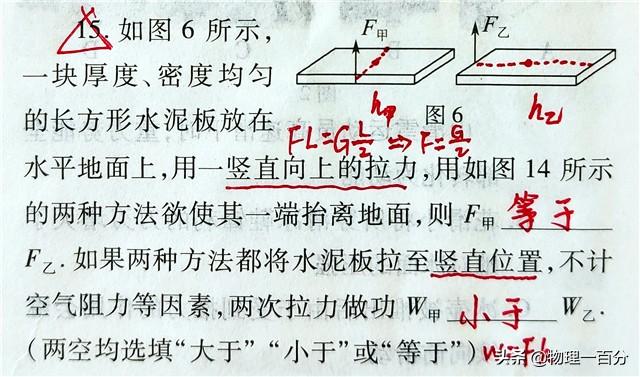 15. 如图6所示,
一块厚度、密度均匀
的长方形水泥板放在
F甲
F乙
h甲
图6
h乙
FL=G L/2 ⇒ F=G/2
水平地面上,用一竖直向上的拉力,用如图14所示
的两种方法欲使其一端抬离地面,则F甲 等于
F乙.如果两种方法都将水泥板拉至竖直位置,不计
空气阻力等因素,两次拉力做功W甲 小于 W乙.
(两空均选填“大于”“小于”或“等于”) W=Fh
头条 @物理一百分